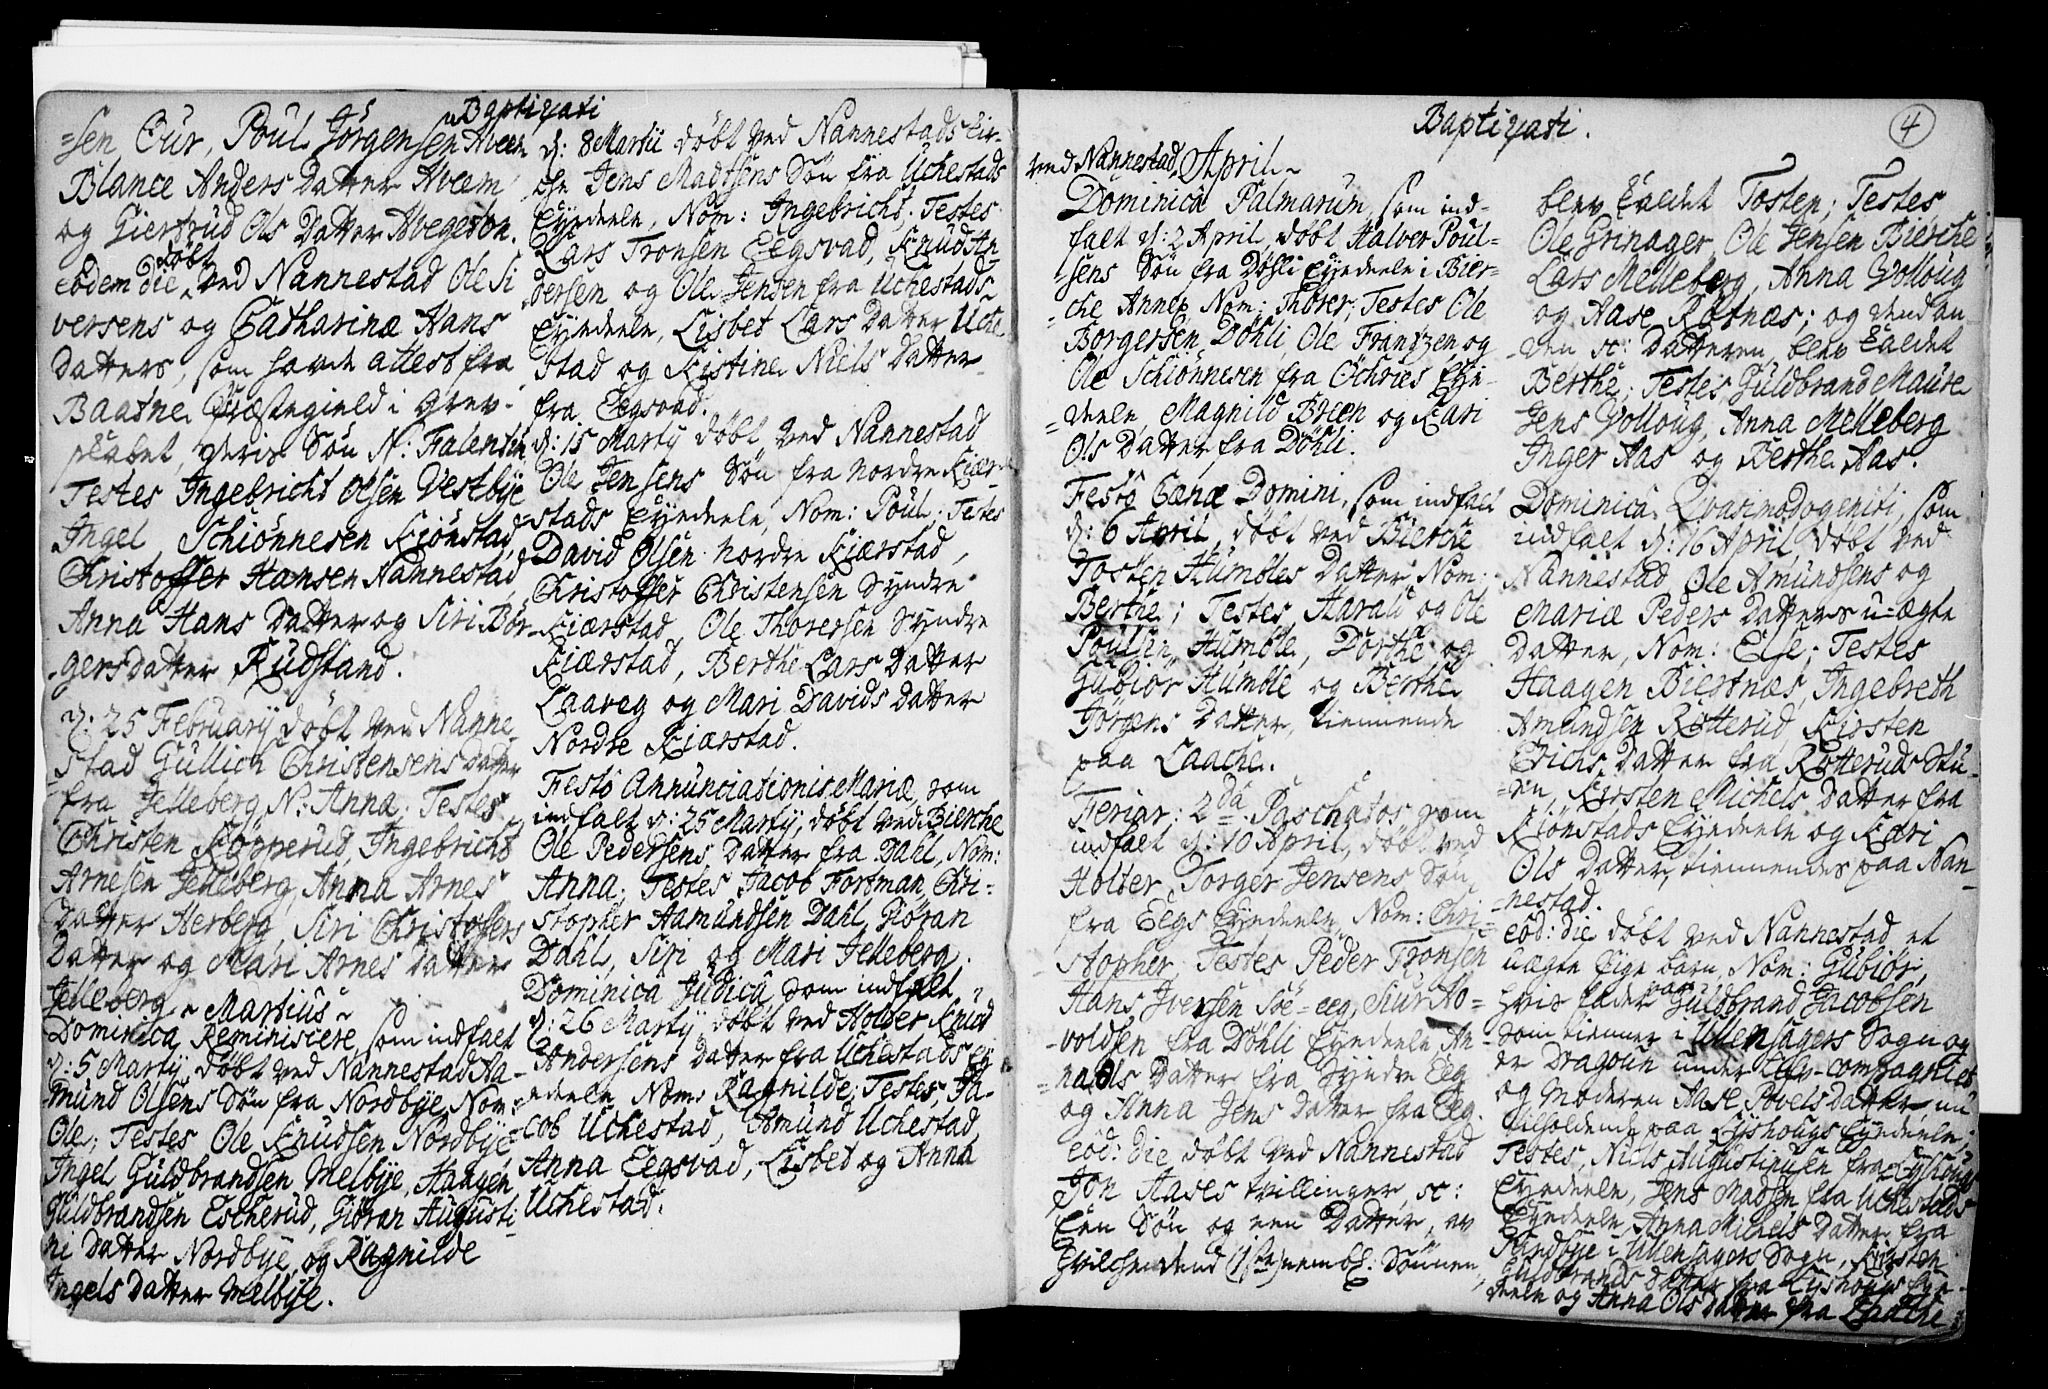 Baptizati
=sen Cur, Poul Jörgensen Aveen
Blance Anders Datter Aveem
og Giertrud Ols Datter
eodem die döbt ved Nannestad Ole Si
versens og Catharinæ Hans
Datters, som havde attest fra
Baatne Præstegield i Grev-
skabet, deris Sön N: Falentin
Testes Ingebricht Olsen Vestbÿe
Ingel Schiönnesen Kiönstad,
Christoffer Hansen Nannestad,
Anna Hans Datter og Siri Bör-
-gersdatter Rudstand.
d: 25 Februarÿ döbt ved Nanne-
stad Gullich Christensens Datter
fra Jelleberg, N: Anna. Testes
Christen Kopperud, Ingebricht
Arnesen Jelleberg, Anna Arnes
Datter Herberg, Siri Christoffers
Datter og Mari Arnes Datter
Jelleberg
~ Martius ~
Dominica Reminiscere, som indfalt
d: 5 Martÿ, döbt ved Nannestad Aa-
mund Olsens Sön fra Nordbÿe, Nom:
Ole; Testes Ole Knudsen Nordbÿe
Ingel Guldbrandsen Melbÿe, Haagen
Guldbrandsen Escherud, Giöran Augusti-
ni Datter Nordbÿe, og Ragnilde
Ingels Datter Melbÿe.
d: 8 Martii döbt ved Nannestads Kir-
che Jens Madtsens Sön fra Uchestads
Eÿedeele, Nom: Ingebricht. Testes
Lars Tronsen Eegsvad, Knud An-
dersen og Ole Jensen fra Uchestads
Eÿedeele, Lisbet Lars Datter Uche
stad og Kistine Niels Datter
fra Eegsvad.
d: 15 Martÿ döbt ved Nannestad
Ole Jensens Sön fra nordre Kiær-
stads Eÿedeele, Nom: Poul; Testes
David Olsen nordre Kiærstad,
Christoffer Christensen Sÿndre
Kiærstad, Ole Thoresen Sÿndre
Kiærstad, Berthe Lars Datter
Laaveg og Mari Davids Datter
Nordre Kiærstad.
Festo Annunciationis Mariæ, som
indfalt d: 25 Martÿ, döbt ved Bierche
Ole Pedersens Datter fra Dahl, Nom:
Anna; Testes Jacob Fortman, Chri-
stopher Aamundsen Dahl, Giöran
Dahl, Siri og Mari Jelleberg.
Dominica Judica, som indfalt
d: 26 Martÿ, döbt ved Holter Knud
Andersens Datter fra Uchestads Eÿ-
edeele Nom: Ragnilde; Testes, Ja-
cob Uchestad, Amund Uchestad
Anna Eegsvad, Lisbet og Anna
Uchestad.
Baptizati.
4
ved Nannestad, April ~
Dominica Palmarum, som ind-
falt d: 2 April, döbt Halver Poul-
sens Sön fra Döhli Eÿedeele i Bier-
che Annex, Nom: Thorer; Testes Ole
Borgersen Döhli, Ole Frantzen og
Ole Schiönnesen fra Öchries Eÿe-
deele, Magnild Breen og Kari
Ols Datter fra Döhli.
Festo Cænæ Domini, som indfalt
d: 6 April, döbt ved Bierche
Tosten Humbles Datter Nom:
Berthe; Testes, Harald og Ole
Poulsen Humble, Dorthe og
Gubiör Humble og Berthe
Jörgens Datter, tiennende
paa Laache.
Feriar: 2da Paschatos, som
indfalt d: 10 April, döbt ved
Holter, Torger Jensens Sön
fra Eegs Eÿedeele, Nom: Chri-
stopher; Testes Peder Tronsen
Hans Iversen Söe-eeg, Siur Ao-
-voldsen fra Döhli Eÿedeele An-
na Ols Datter fra Sÿndre Eeg
og Anna Jens Datter fra Eeg.
eod: die döbt ved Nannestad
Jon Aases tvillinger, sc:
Een Sön og een Datter, av
hvilche dend (1ste) nembl: Sönnen
blev kaldet Tosten; Testes
Ole Grinager, Ole Jensen Bierche
Lars Melleberg, Anna Volloug
og Aase Ratnæs; og dend an
den sc: Datteren, blev kaldet
Berthe; Testes Guldbrand Maure
Jens Volloug, Anna Melleberg
Inger Aas og Berthe Aas.
Dominica Qvasimodogeniti, som
indfalt d: 16 April, döbt ved
Nannestad Ole Amundsens og
Mariæ Peders Datters u-ægte
Datter, Nom: Else; Testes
Haagen Biertnæs, Ingebreth
Amundsen Rotterud, Kirsten
Erichs Datter fra Rotterud Stu-
en, Kirsten Michels Datter fra
Kiönstads Eÿedeele og Kari
Ols Datter, tiennendes paa Nan-
nestad.
eod: die döbt ved Nannestad et
uægte Pige barn, Nom: Gubiör,
hvis fader var Guldbrand Jacobsen
som tienner i Ullensagers Sogn og
er Dragoun under Liv-compagniet
og Moderen Aase Povels Datter nu
tilholdende paa Lÿshougs Eÿedeele;
Testes, Niels Augustinsen fra Lÿshougs
Eÿedeele, Jens Madsen fra Uchestads
Eÿedeele, Anna Michels Datter fra
Sandbÿe i Ullensagers Sogn, Kirsten
Guldbrands Datter fra Lÿshougs Eÿe-
deele og Anna Ols Datter fra Laache